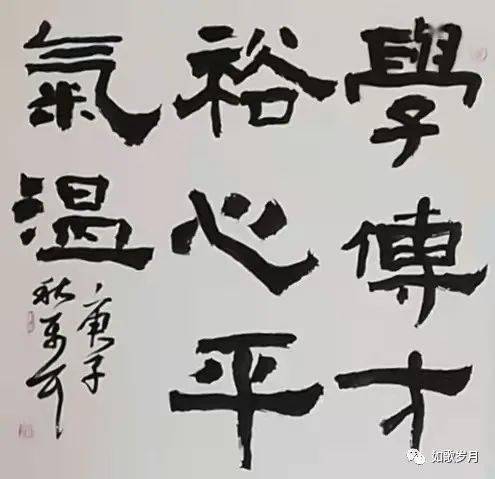 學傳才
裕心平
氣温
庚子
秋
如歌岁月